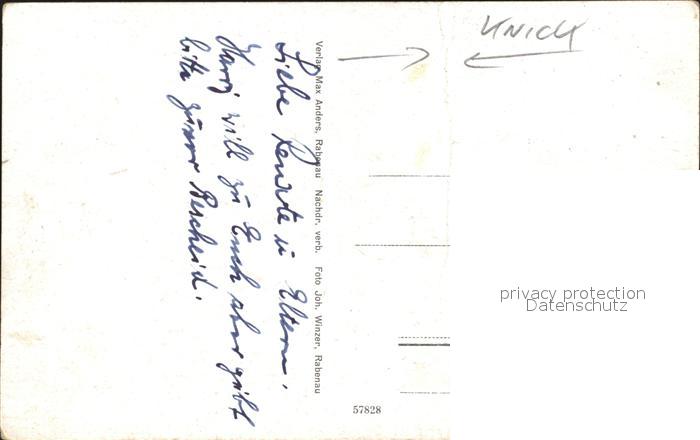 KNICK
Verlag Max Anders, Rabenau Nachdr. verb. Foto Joh. Winzer, Rabenau
Liebe u Eltern.
will zu Euch aber gebt
bitte zuvor Bescheid.
57828
privacy protection
Datenschutz